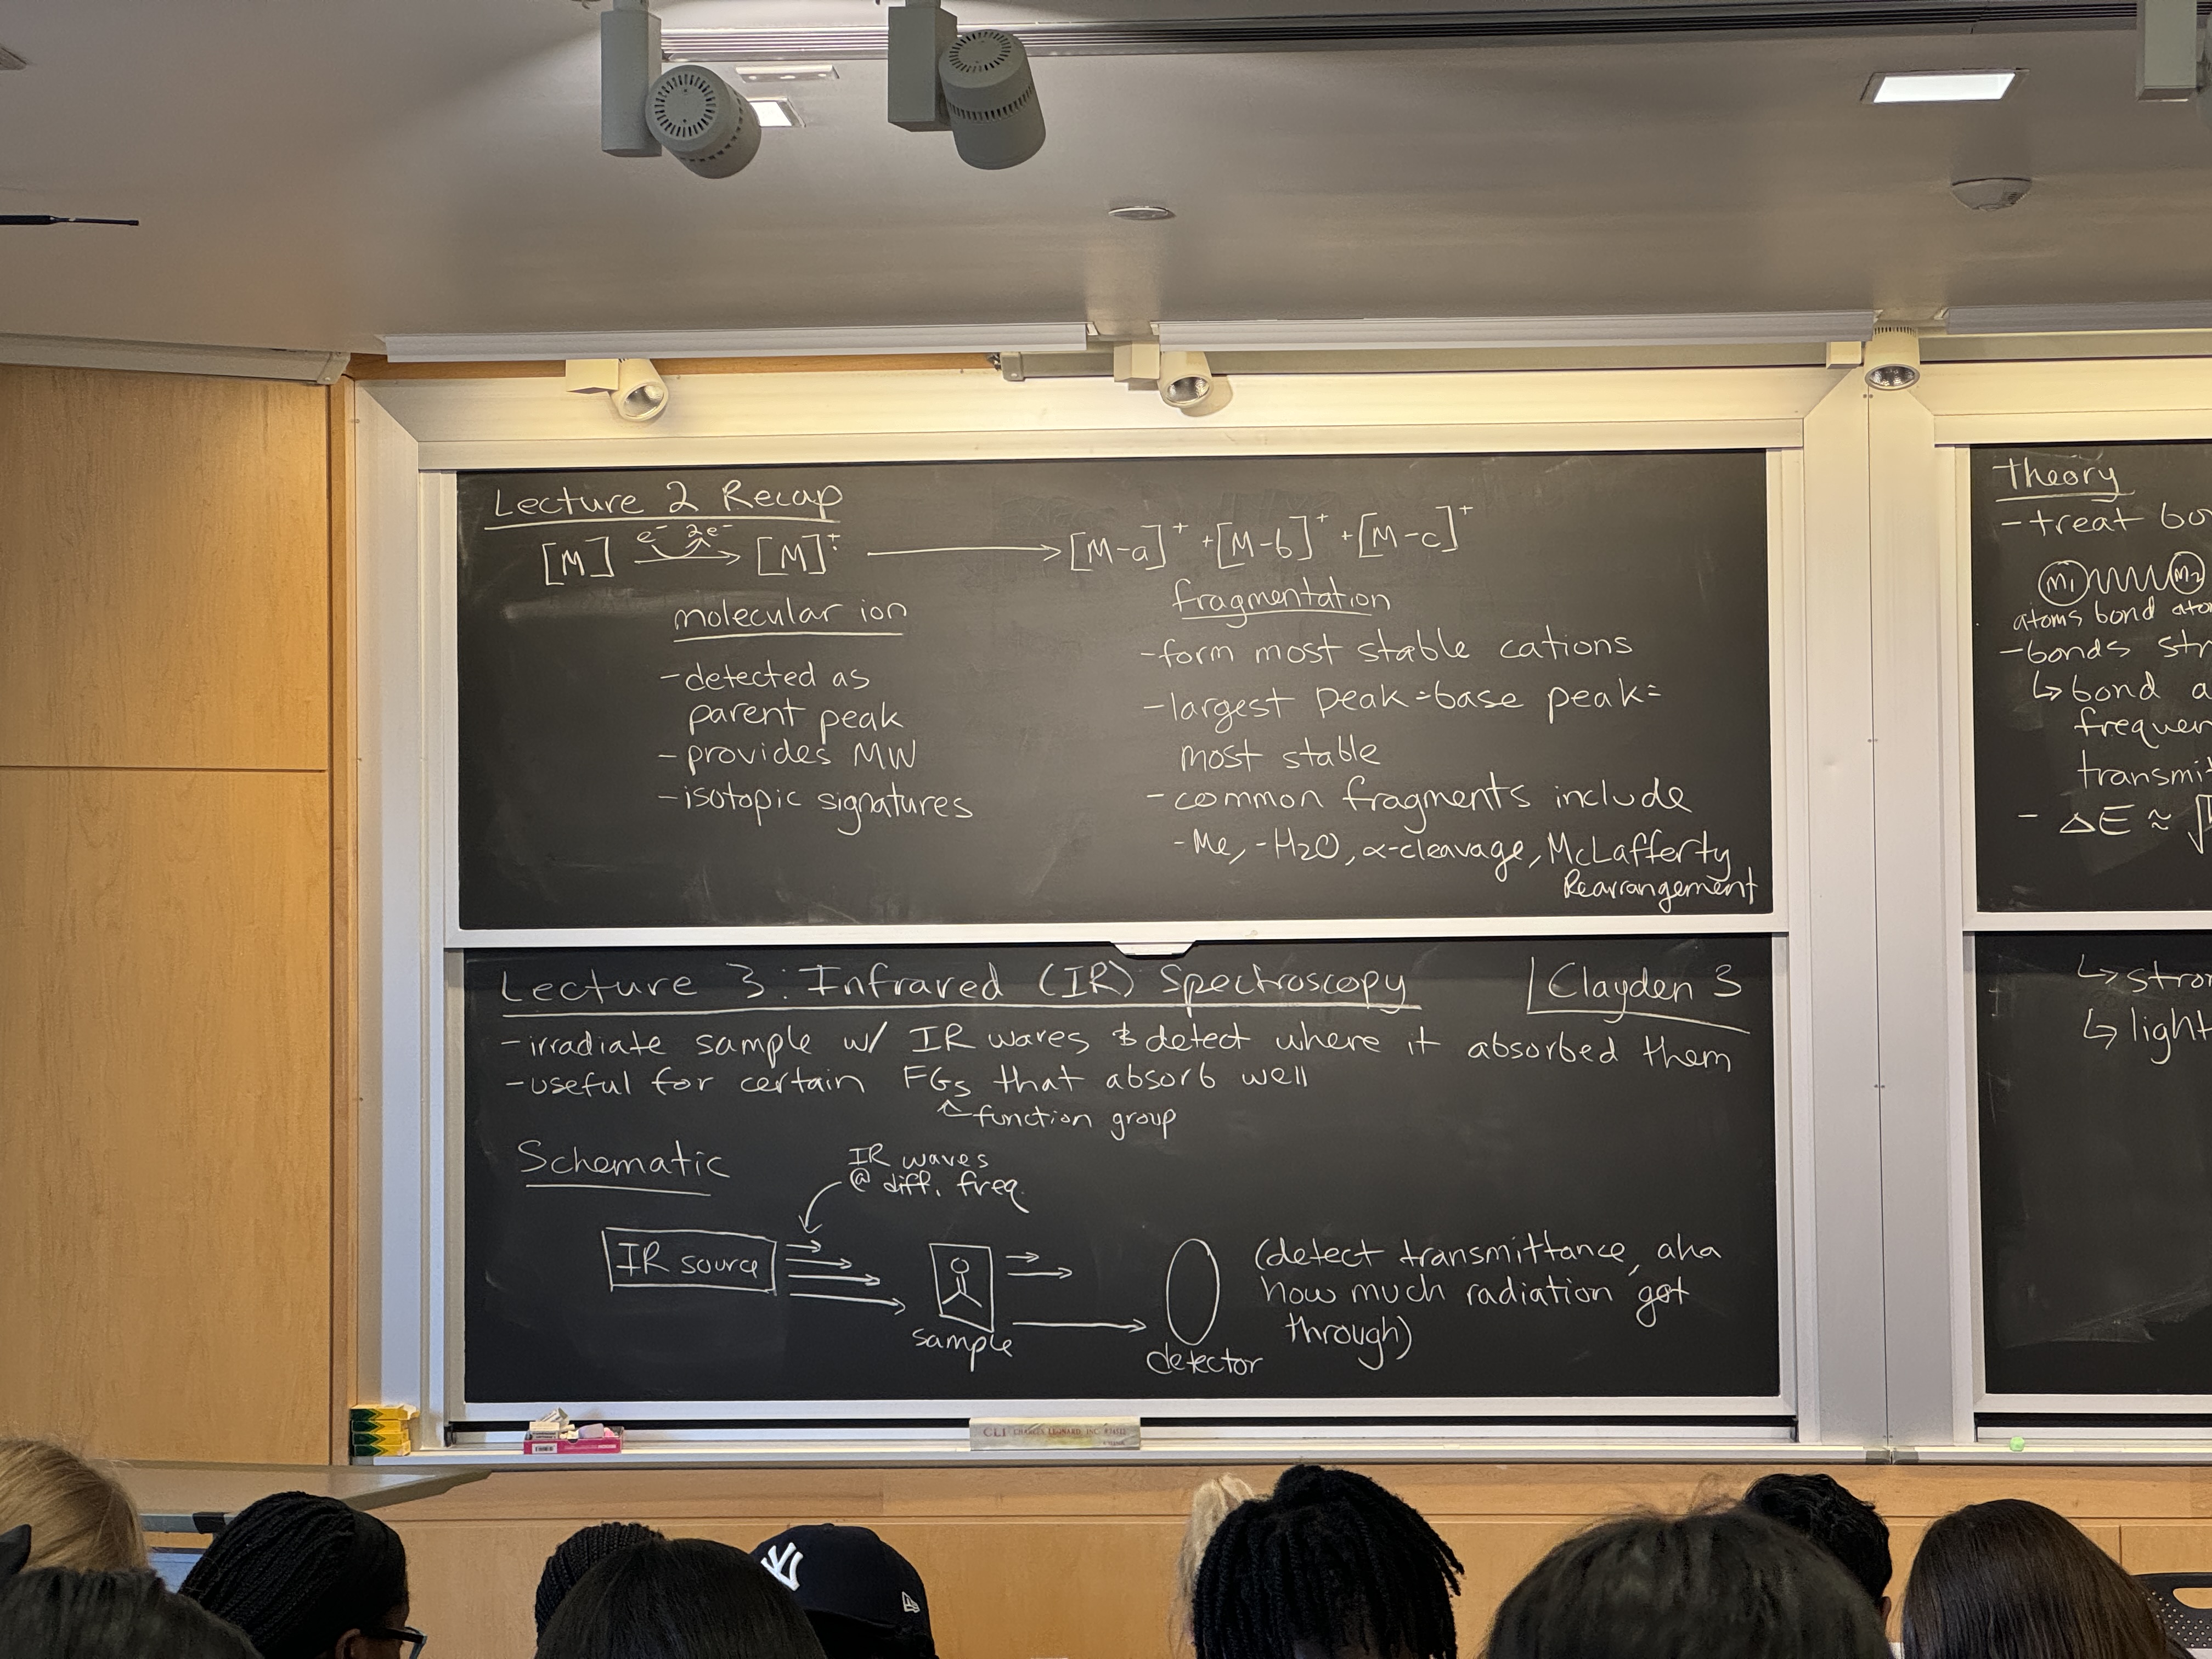 Lecture 2 Recap
[M] e⁻ 2e⁻ [M]⁺· → [M-a]⁺ + [M-b]⁺ + [M-c]⁺
molecular ion
-detected as
parent peak
-provides MW
-isotopic signatures
fragmentation
-form most stable cations
-largest peak=base peak=
most stable
-common fragments include
-Me, -H₂O, α-cleavage, McLafferty
Rearrangement
Lecture 3: Infrared (IR) Spectroscopy
Clayden 3
-irradiate sample w/ IR waves & detect where it absorbed them
-useful for certain FGs that absorb well
function group
Schematic
IR waves
@ diff. freq.
IR source
sample
detector
(detect transmittance, aka
how much radiation got
through)
Theory
-treat bo
m₁ m₂
atoms bond ato
-bonds str
↳ bond a
frequen
transmit
- ΔE ≈ √
↳ stron
↳ light
CLI CHARLES LEONARD INC.
NY